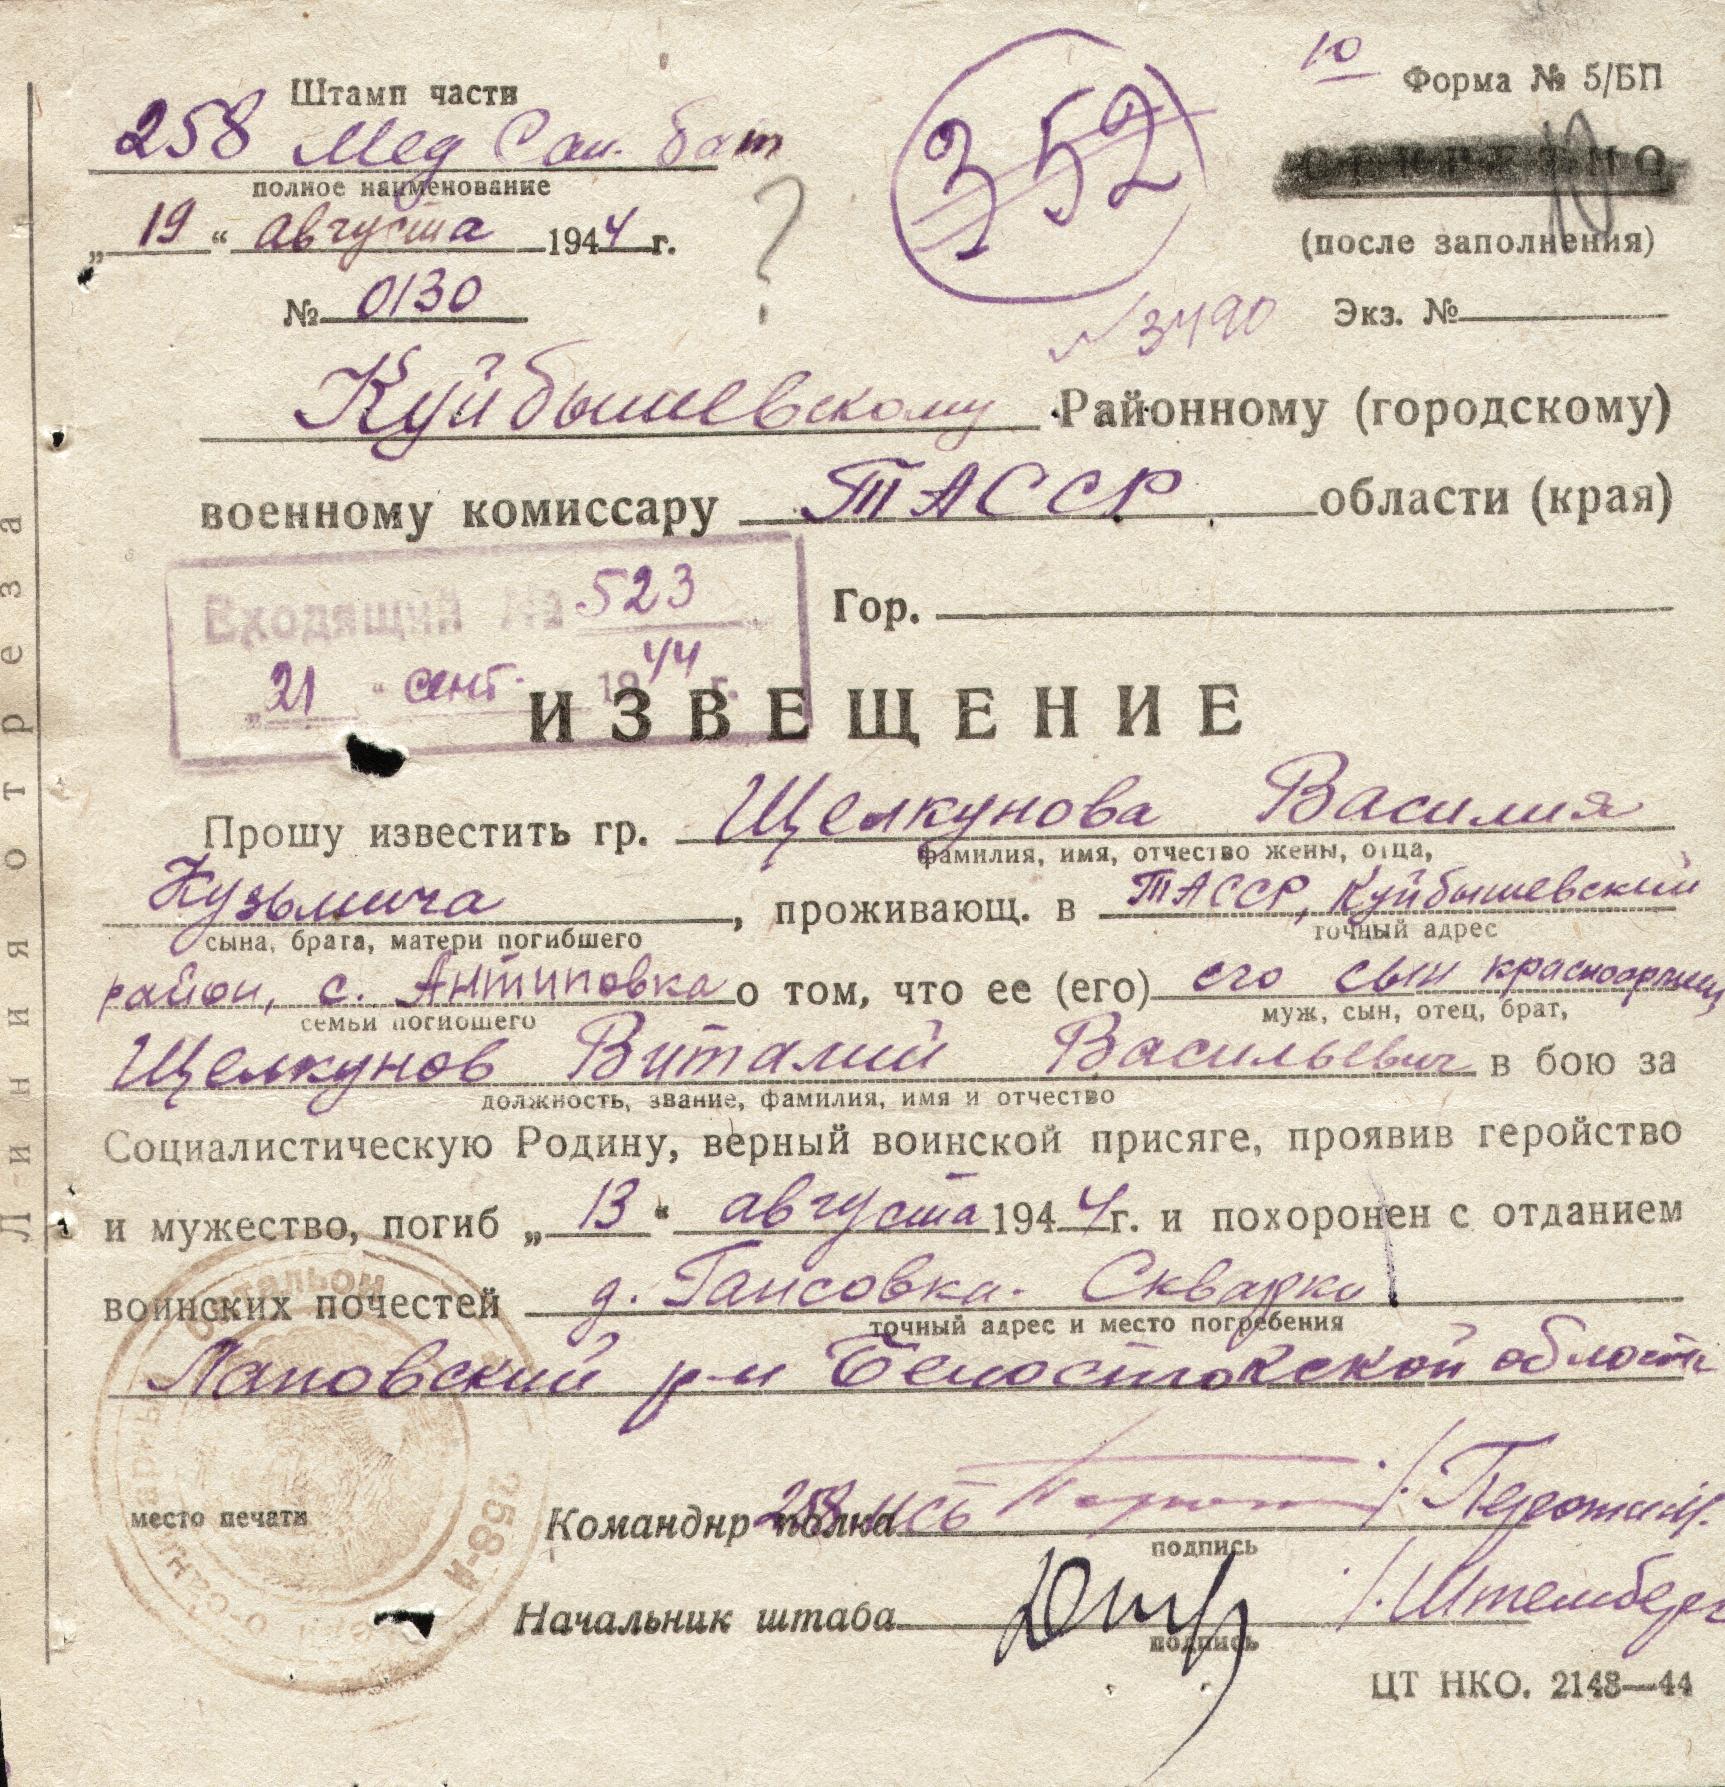 10
Форма № 5/БП
Штамп части
258 Мед Сан. бат
352
полное наименование
„19“ августа 1944 г.
(после заполнения)
№ 0130
N 3490
Экз. №
Куйбышевскому Районному (городскому)
военному комиссару ТАССР области (края)
Входящий № 523
Гор.
„21“ сент. 1944 г.
ИЗВЕЩЕНИЕ
Прошу известить гр. Щелкунова Василия
фамилия, имя, отчество жены, отца,
Кузьмича, проживающ. в ТАССР, Куйбышевский
сына, брата, матери погибшего
точный адрес
район, с. Антиповка о том, что ее (его) его сын красноармеец
семьи погибшего
муж, сын, отец, брат,
Щелкунов Виталий Васильевич в бою за
должность, звание, фамилия, имя и отчество
Социалистическую Родину, верный воинской присяге, проявив геройство
и мужество, погиб „13“ августа 1944 г. и похоронен с отданием
воинских почестей д. Гансовка. Скварки
точный адрес и место погребения
Лаповский р-н Белостокской области
место печати
Командир полка 258 МСБ
подпись
Начальник штаба /Штемберг
подпись
ЦТ НКО. 2148—44
Линия отреза